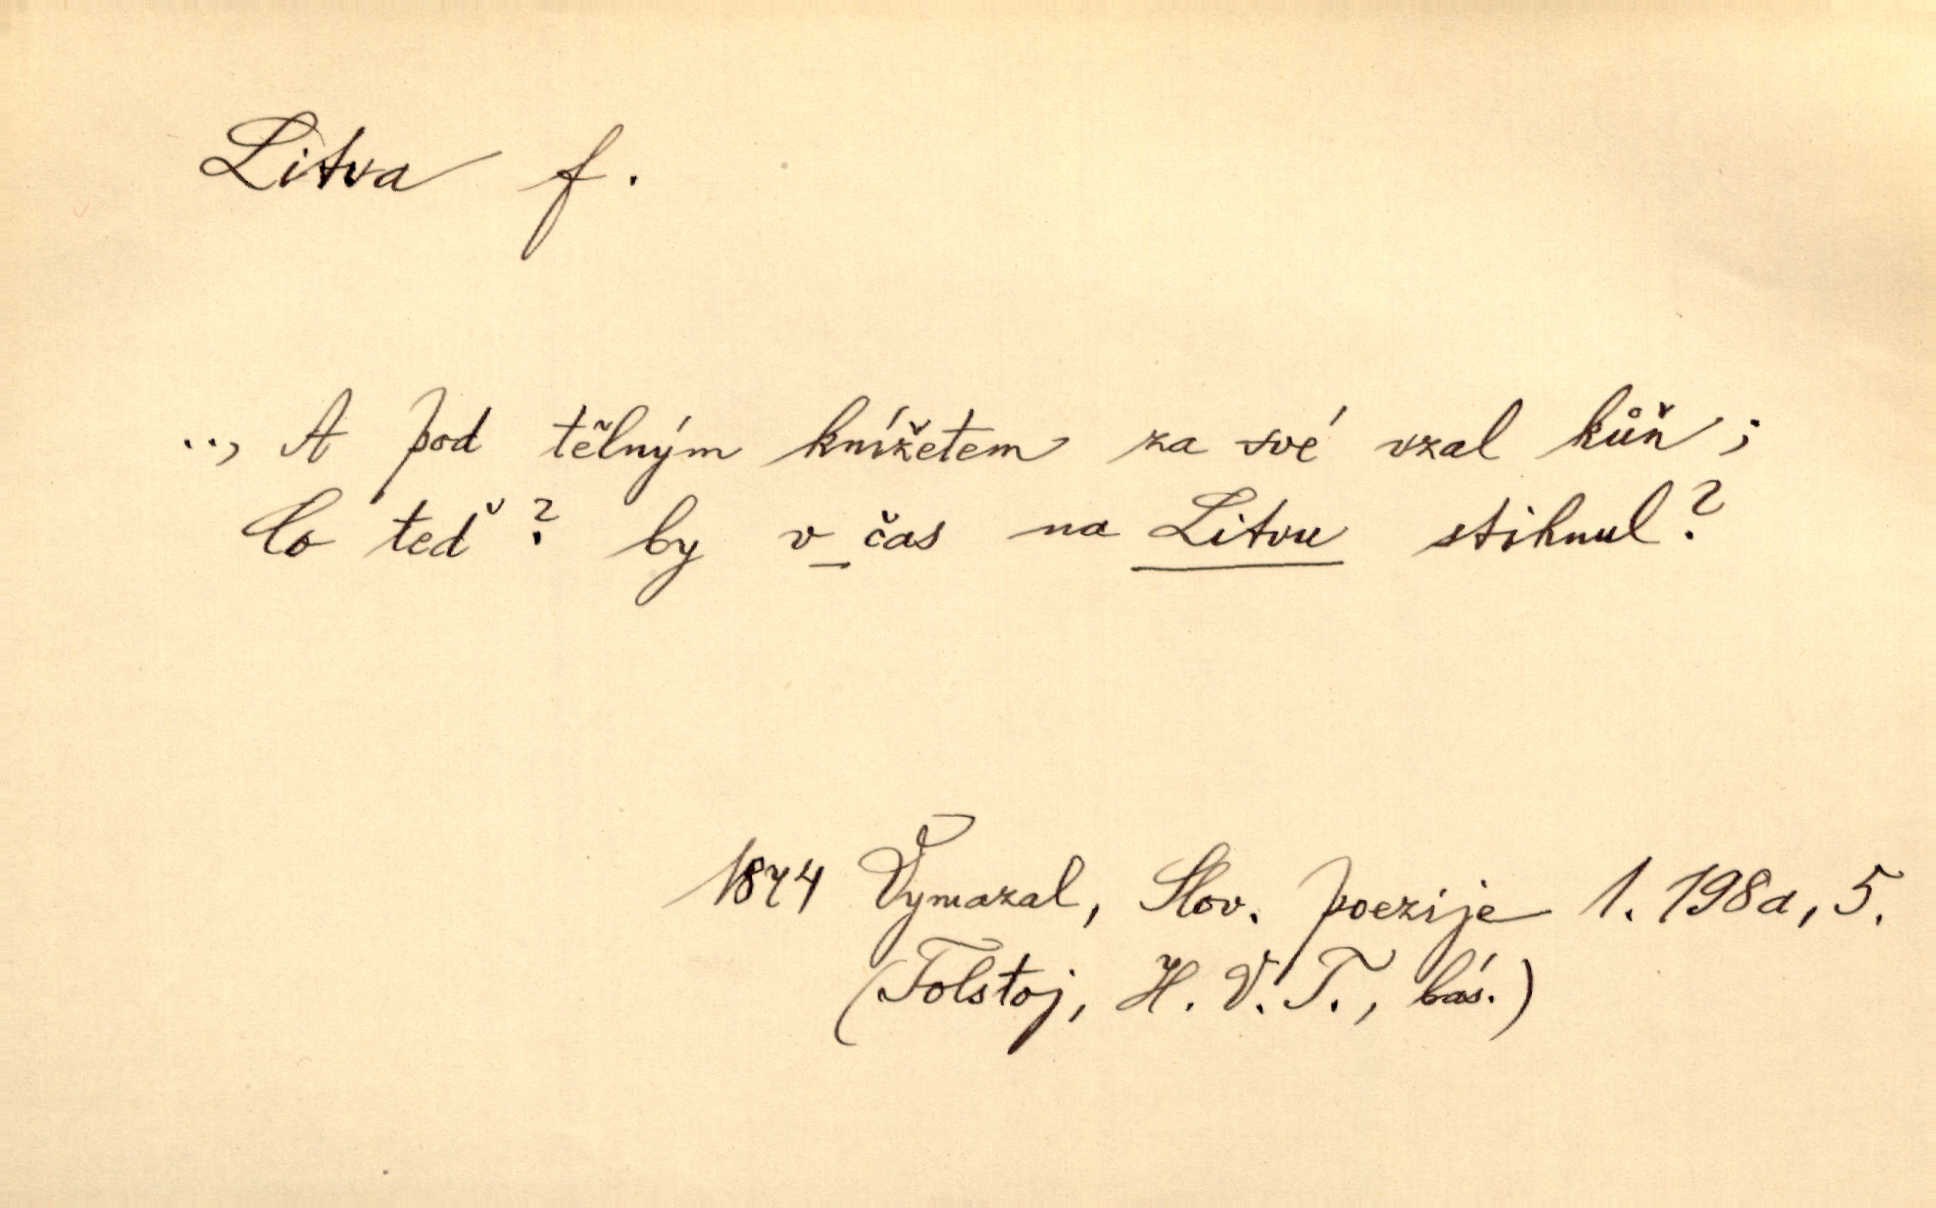 Litva f.
.., A pod tělným knížetem za své vzal kůň;
Co teď? by v čas na Litvu stihnul?
1874 Vymazal, Slov. poezije 1. 198a, 5.
(Tolstoj, H. V. T., bás.)